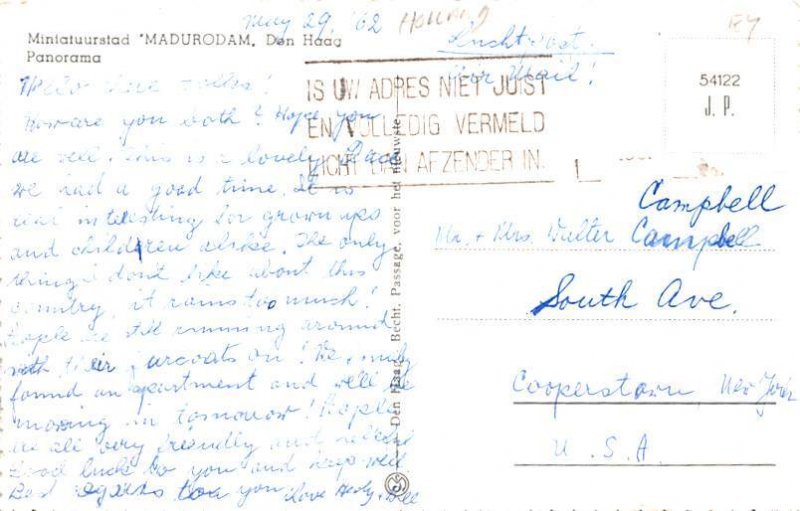 May 29, '62 HOLLAND
Miniatuurstad "MADURODAM, Den Haag
Panorama
Luchtpost.
Air Mail!
54122
J. P.
IS UW ADRES NIET JUIST
EN VOLLEDIG VERMELD
LICHT DAN AFZENDER IN.
Hello dear folks!
How are you both? Hope you
are well. This is a lovely place
we had a good time. It is
real interesting for grown ups
and children alike. The only
thing i don't like about this
country, it rains too much!
People are still running around
with their furcoats on! We finally
found an apartment and will be
moving in tomorrow! People
are all very friendly and
Good luck to you and keep well.
Best regards to you Love
Den Haag Becht, Passage, voor het nieuwste
Campbell
Mr. + Mrs. Walter Campbell
South Ave.
Cooperstown New York
U. S. A.